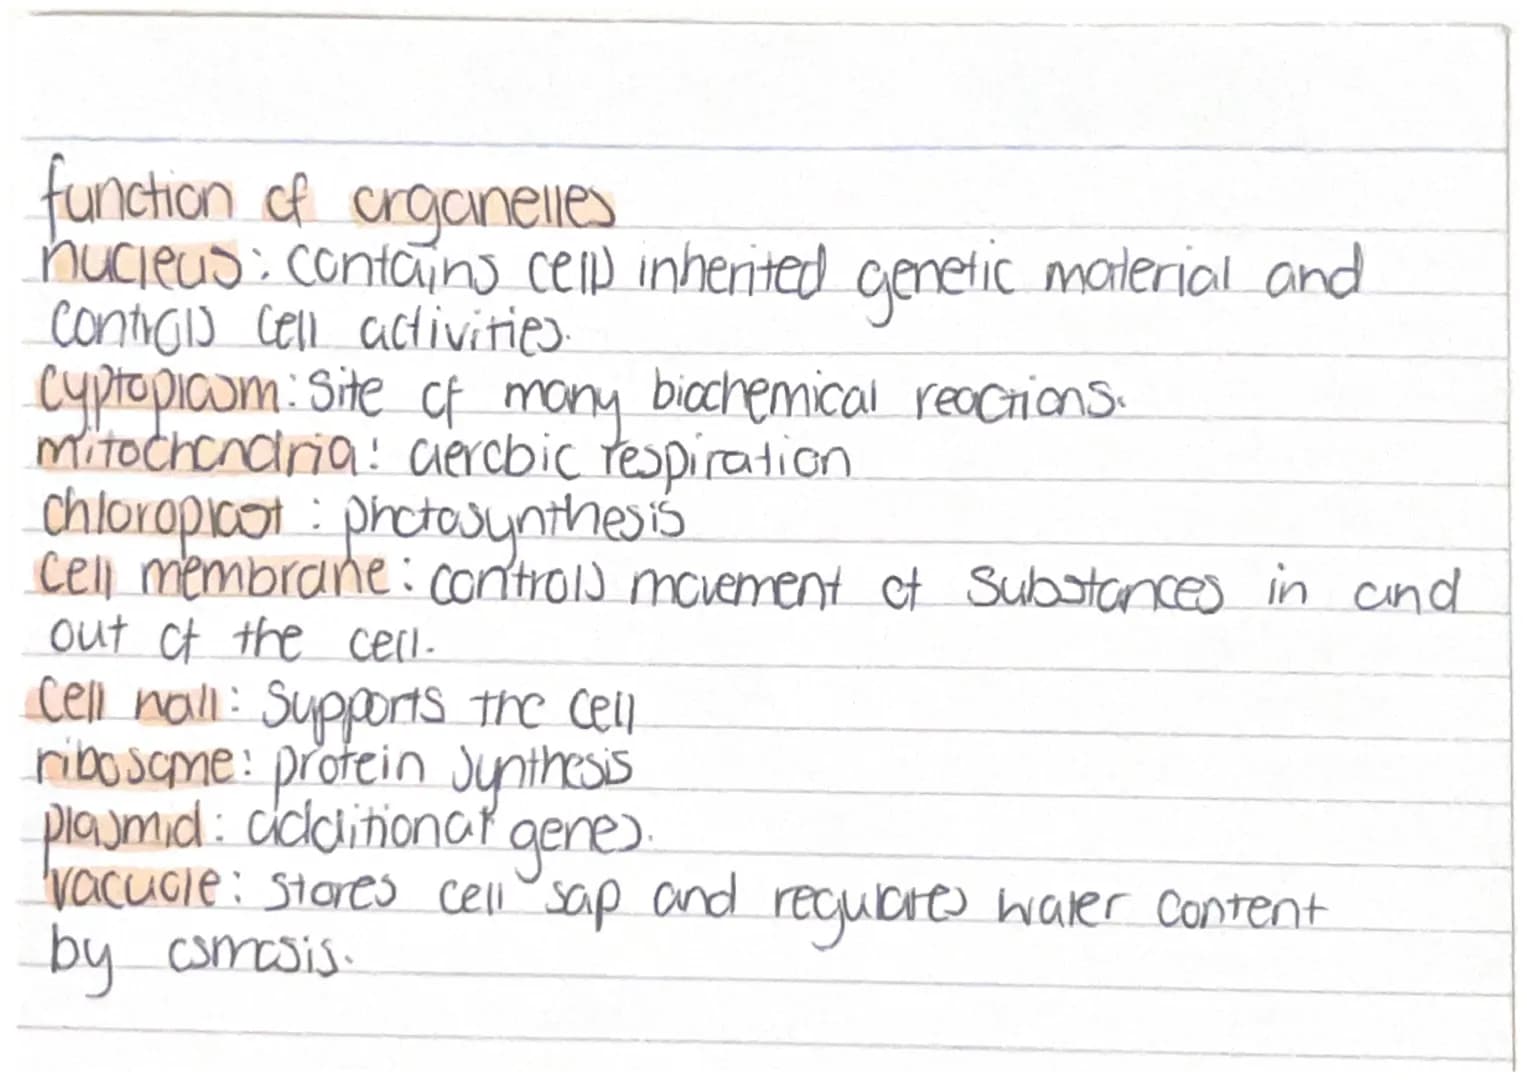 function of organelles
nucleus: contains cells inherited genetic material and
controls cell activities.
cyptoplasm: site of many biochemical reactions.
mitochondria: aerobic respiration
chloroplast: photosynthesis
cell membrane: controls movement of substances in and
out of the cell.
cell wall: supports the cell
ribosome: protein synthesis
plasmid: additional genes.
vacuole: stores cell sap and regulates water content
by osmosis.